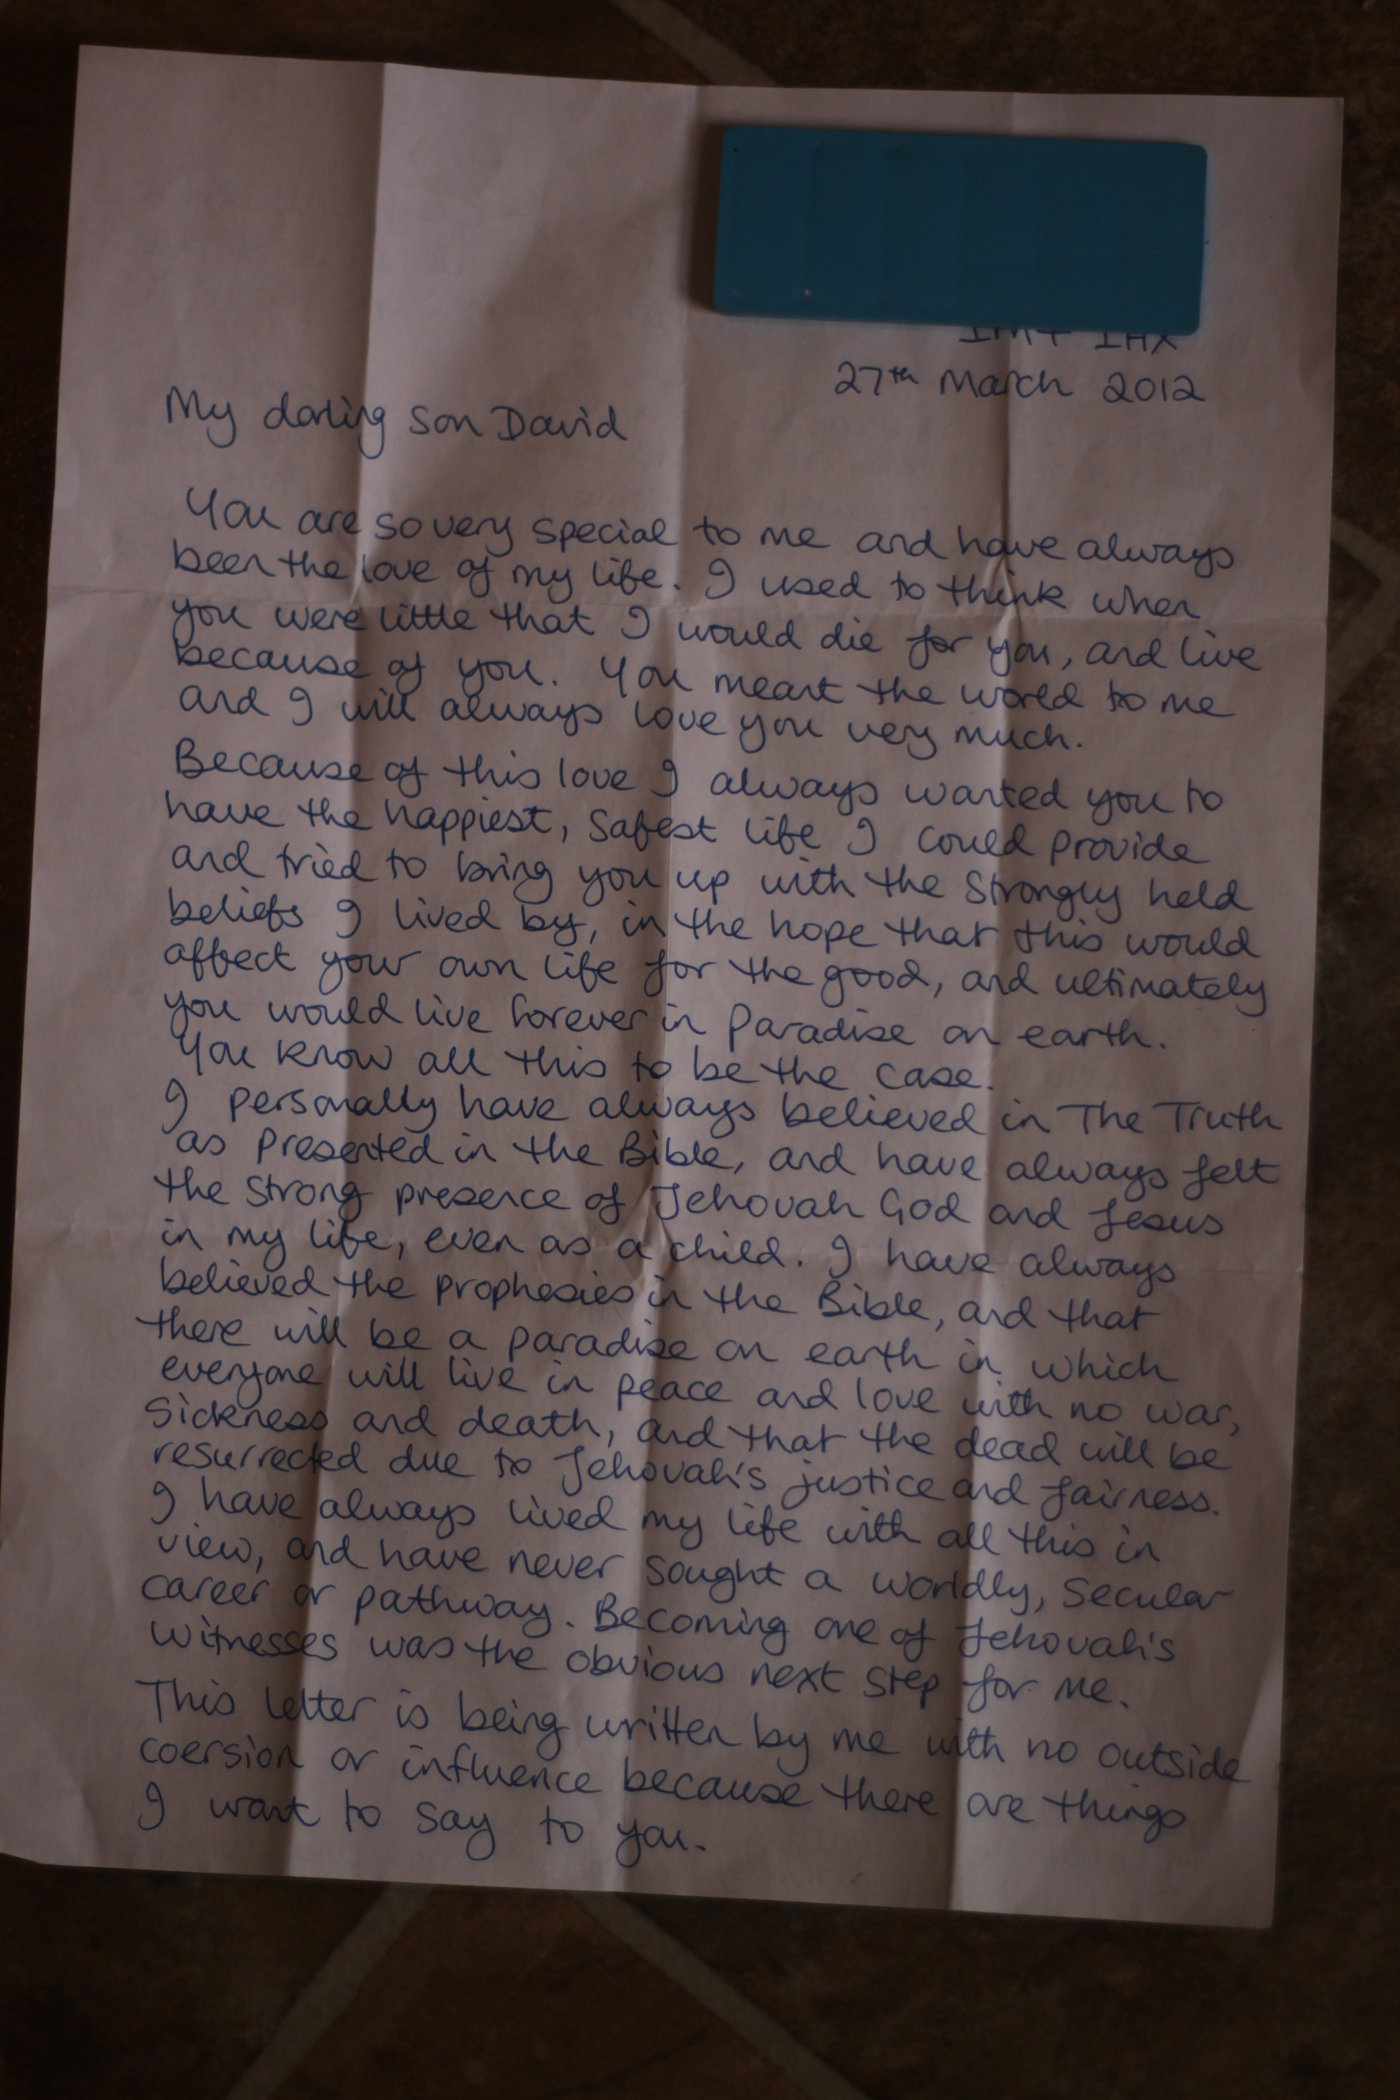 27th March 2012
My darling son David
You are so very special to me and have always
been the love of my life. I used to think when
you were little that I would die for you, and live
because of you. You meant the world to me
and I will always love you very much.
Because of this love I always wanted you to
have the happiest, safest life I could provide
and tried to bring you up with the strongly held
beliefs I lived by, in the hope that this would
affect your own life for the good, and ultimately
you would live forever in Paradise on earth.
You know all this to be the case.
I personally have always believed in The Truth
as presented in the Bible, and have always felt
the strong presence of Jehovah God and Jesus
in my life, even as a child. I have always
believed the prophesies in the Bible, and that
there will be a paradise on earth in which
everyone will live in peace and love with no war,
sickness and death, and that the dead will be
resurrected due to Jehovah's justice and fairness.
I have always lived my life with all this in
view, and have never sought a worldly, secular
career or pathway. Becoming one of Jehovah's
Witnesses was the obvious next step for me.
This letter is being written by me with no outside
coersion or influence because there are things
I want to say to you.